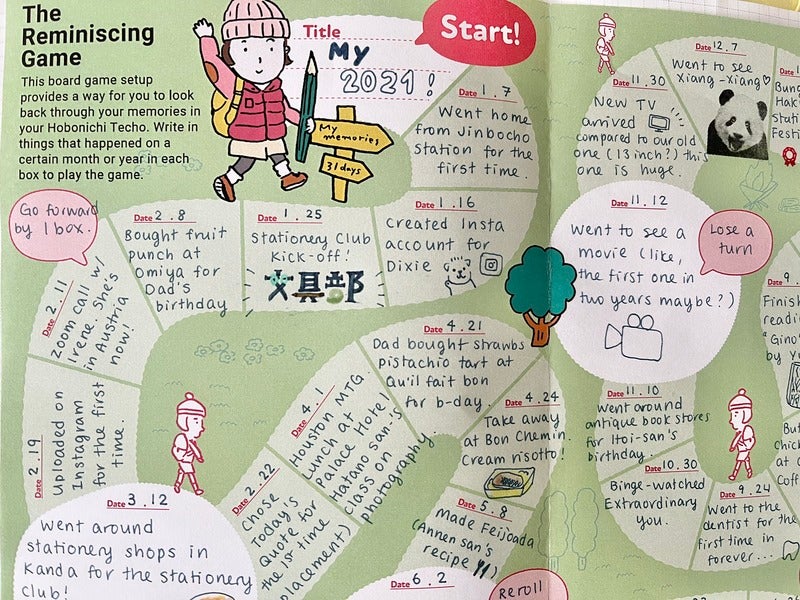 The
Reminiscing
Game
This board game setup
provides a way for you to look
back through your memories in
your Hobonichi Techo. Write in
things that happened on a
certain month or year in each
box to play the game.
Title
My
2021!
Start!
My
memories
31 days
Date 1.7
Went home
from Jinbocho
station for the
first time.
Date 1.16
Created Insta
account for
Dixie
Date 1.25
Stationery Club
Kick-off!
文具部
Date 2.8
Bought fruit
punch at
Omiya for
Dad's
birthday
Go forward
by 1 box.
Date 2.11
Zoom call w/
Irene, she's
in Austria
now!
Date 2.19
Uploaded on
Instagram
for the first
time.
Date 3.12
Went around
stationery shops in
Kanda for the stationery
club!
Date 2.22
Chose
Today's
Quote for
the 1st time
placement)
Date 4.1
Houston MTG.
Lunch at
Palace Hotel
Hatano san's
class on
photography.
Date 4.21
Dad bought strawbs
pistachio tart at
Qu'il fait bon
for b-day.
Date 4.24
Take away
at Bon Chemin.
Cream risotto!
Date 5.8
Made Feijoada
(Annen san's
recipe)
Date 6.2
Reroll
Date 9.24
Went to the
dentist for the
first time in
forever...
Date 10.30
Binge-watched
Extraordinary
you.
Date 11.10
Went around
antique book stores
for Itoi-san's
birthday.
Date 11.12
Went to see a
movie (like,
the first one in
two years maybe?)
Lose a
turn
Date 11.30
New TV
arrived
compared to our old
one (13 inch?) this
one is huge.
Date 12.7
Went to see
Xiang-Xiang♡